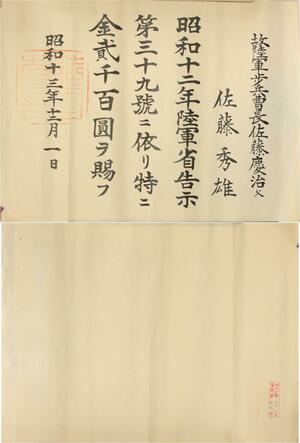 故陸軍歩兵曹長佐藤慶治父
佐藤秀雄
昭和十二年陸軍省告示
第三十九號ニ依リ特ニ
金貳千百圓ヲ賜フ
昭和十三年十二月一日